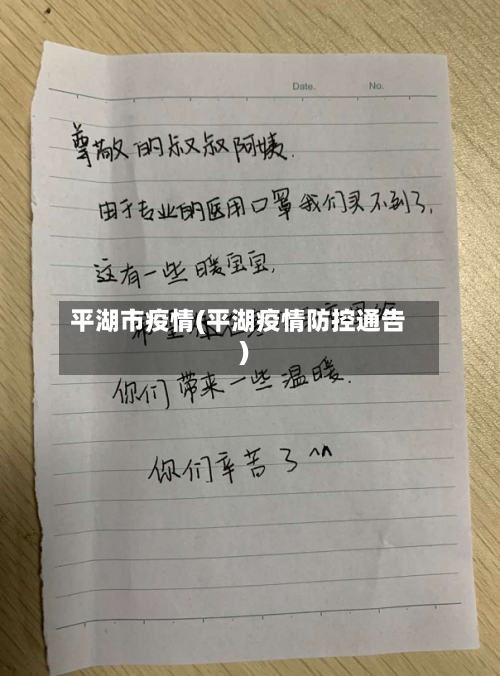 Date. No.
尊敬的叔叔阿姨.
由于专业的医用口罩我们买不到了,
这有一些暖宝宝,
平湖市疫情(平湖疫情防控通告
)
希望
你们带来一些温暖.
你们辛苦了^^